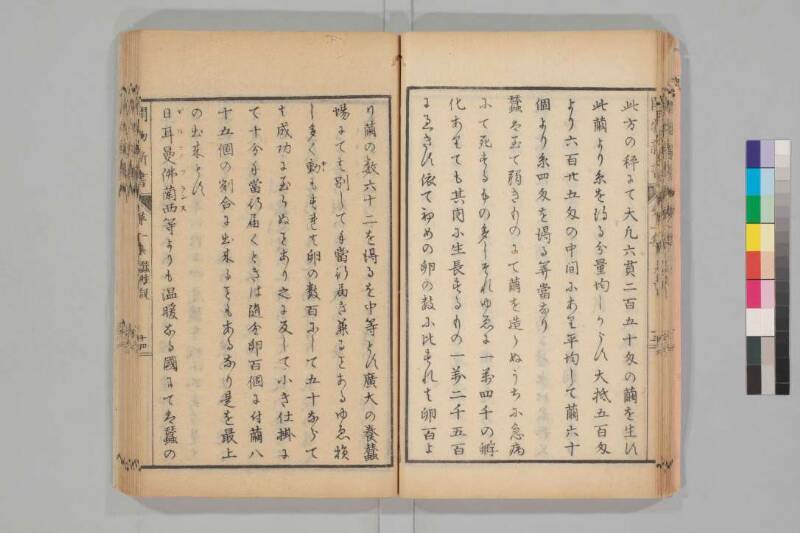 此方の秤にて大凡六貫二百五十匁の繭を生ひ
此繭より糸を得る分量均しからひ大抵五百匁
より六百廿五匁の中間にあり平均して繭六十
個より糸四匁を得る算當なり
蠶は至て弱きものにて繭を造らぬうちに急病
にて死するもの多しそれゆゑに一万四千の孵
化ありても其内に生長するもの一万二千五百
に依て初めの卵の数に比すれは卵百よ
り繭の数六十二を得るを中等とひ廣大の養蠶
場にても別して手當行届き兼ることあるゆゑ損
し多く動もすれは卵の数百にして五十ならて
は成功に至らぬことあり之に反して小き仕掛に
て十分手當行届くときは随分卵百個に付繭八
十五個の割合に出来ることもあるなり是を最上
の出来とひ
日耳曼佛蘭西等よりも温暖なる國にては蠶の
開物新書
巻一
蠶性説